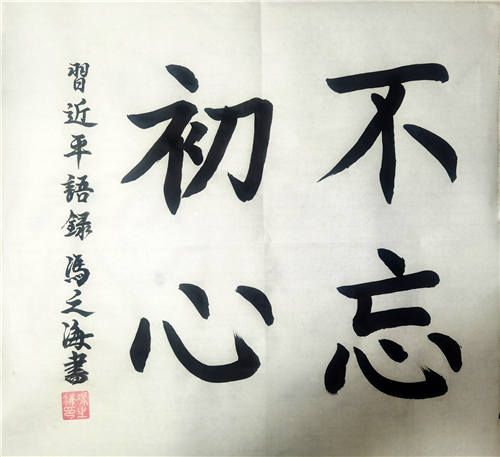 不忘
初心
習近平語録冯之海書